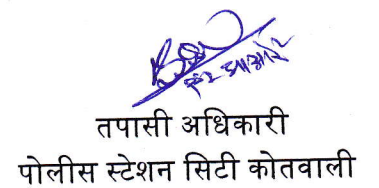 तपासी अधिकारी
पोलीस स्टेशन सिटी कोतवाली